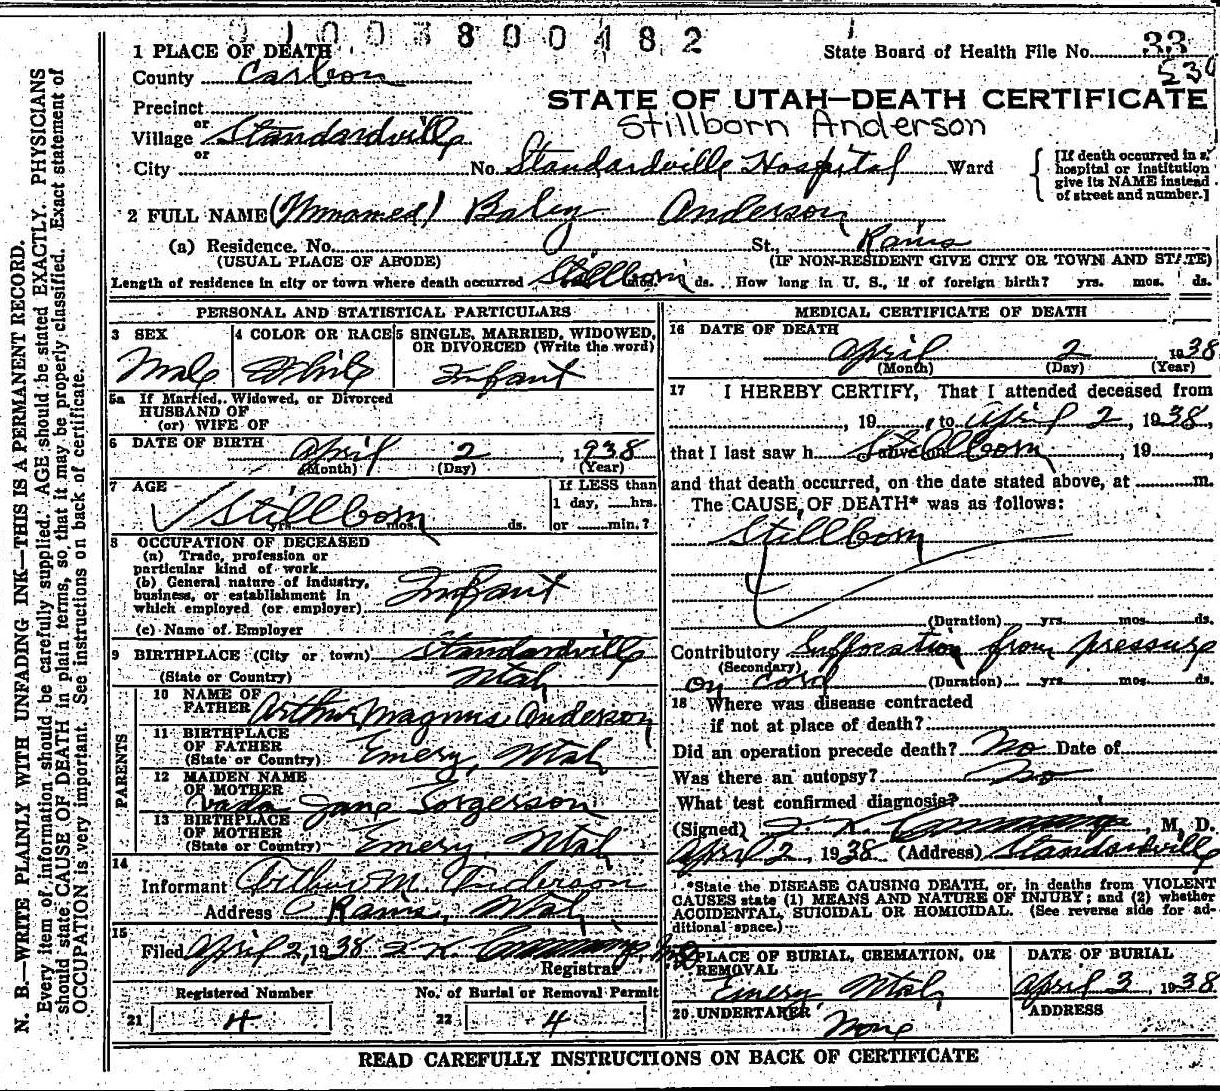 9 1 0 0 3 8 0 0 4 8 2
1 PLACE OF DEATH
State Board of Health File No. 33
530
County Carbon
STATE OF UTAH—DEATH CERTIFICATE
Precinct
Stillborn Anderson
or
Village Standardville
or
City No. Standardville Hospital Ward
[If death occurred in a hospital or institution give its NAME instead of street and number.]
2 FULL NAME (Unnamed) Baby Anderson
(a) Residence. No. St., Rains
(USUAL PLACE OF ABODE) (IF NON-RESIDENT GIVE CITY OR TOWN AND STATE)
Length of residence in city or town where death occurred Stillborn mos. ds. How long in U. S., if of foreign birth? yrs. mos. ds.
PERSONAL AND STATISTICAL PARTICULARS
3 SEX
Male
4 COLOR OR RACE
White
5 SINGLE, MARRIED, WIDOWED, OR DIVORCED (Write the word)
Infant
5a If Married, Widowed, or Divorced
HUSBAND OF
(or) WIFE OF
6 DATE OF BIRTH April 2, 1938
(Month) (Day) (Year)
7 AGE
Stillborn
yrs. mos. ds.
If LESS than
1 day, hrs.
or min.?
8 OCCUPATION OF DECEASED
(a) Trade, profession or
particular kind of work
(b) General nature of industry,
business, or establishment in
which employed (or employer) Infant
(c) Name of Employer
9 BIRTHPLACE (City or town) Standardville
(State or Country) Utah
PARENTS
10 NAME OF
FATHER Arthur Magnus Anderson
11 BIRTHPLACE
OF FATHER
(State or Country) Emery, Utah
12 MAIDEN NAME
OF MOTHER
Vada Jane Sorgerson
13 BIRTHPLACE
OF MOTHER
(State or Country) Emery, Utah
14
Informant Arthur M. Anderson
Address Rains, Utah
15
Filed April 2, 1938
Registrar
Registered Number No. of Burial or Removal Permit
21 4 22 4
MEDICAL CERTIFICATE OF DEATH
16 DATE OF DEATH
April 2 1938
(Month) (Day) (Year)
17 I HEREBY CERTIFY, That I attended deceased from
, 19 , to April 2, 1938,
that I last saw h alive on Stillborn, 19 ,
and that death occurred, on the date stated above, at m.
The CAUSE OF DEATH* was as follows:
Stillborn
(Duration) yrs. mos. ds.
Contributory Suffocation from pressure
(Secondary)
on cord (Duration) yrs. mos. ds.
18 Where was disease contracted
if not at place of death?
Did an operation precede death? No Date of
Was there an autopsy? No
What test confirmed diagnosis?
(Signed) , M. D.
April 2, 1938 (Address) Standardville
*State the DISEASE CAUSING DEATH, or, in deaths from VIOLENT
CAUSES state (1) MEANS AND NATURE OF INJURY; and (2) whether
ACCIDENTAL, SUICIDAL OR HOMICIDAL. (See reverse side for ad-
ditional space.)
PLACE OF BURIAL, CREMATION, OR
REMOVAL
Emery, Utah
DATE OF BURIAL
April 3, 1938
20 UNDERTAKER
None
ADDRESS
READ CAREFULLY INSTRUCTIONS ON BACK OF CERTIFICATE
N. B.—WRITE PLAINLY WITH UNFADING INK—THIS IS A PERMANENT RECORD.
Every item of information should be carefully supplied. AGE should be stated EXACTLY. PHYSICIANS
should state CAUSE OF DEATH in plain terms, so that it may be properly classified. Exact statement of
OCCUPATION is very important. See instructions on back of certificate.